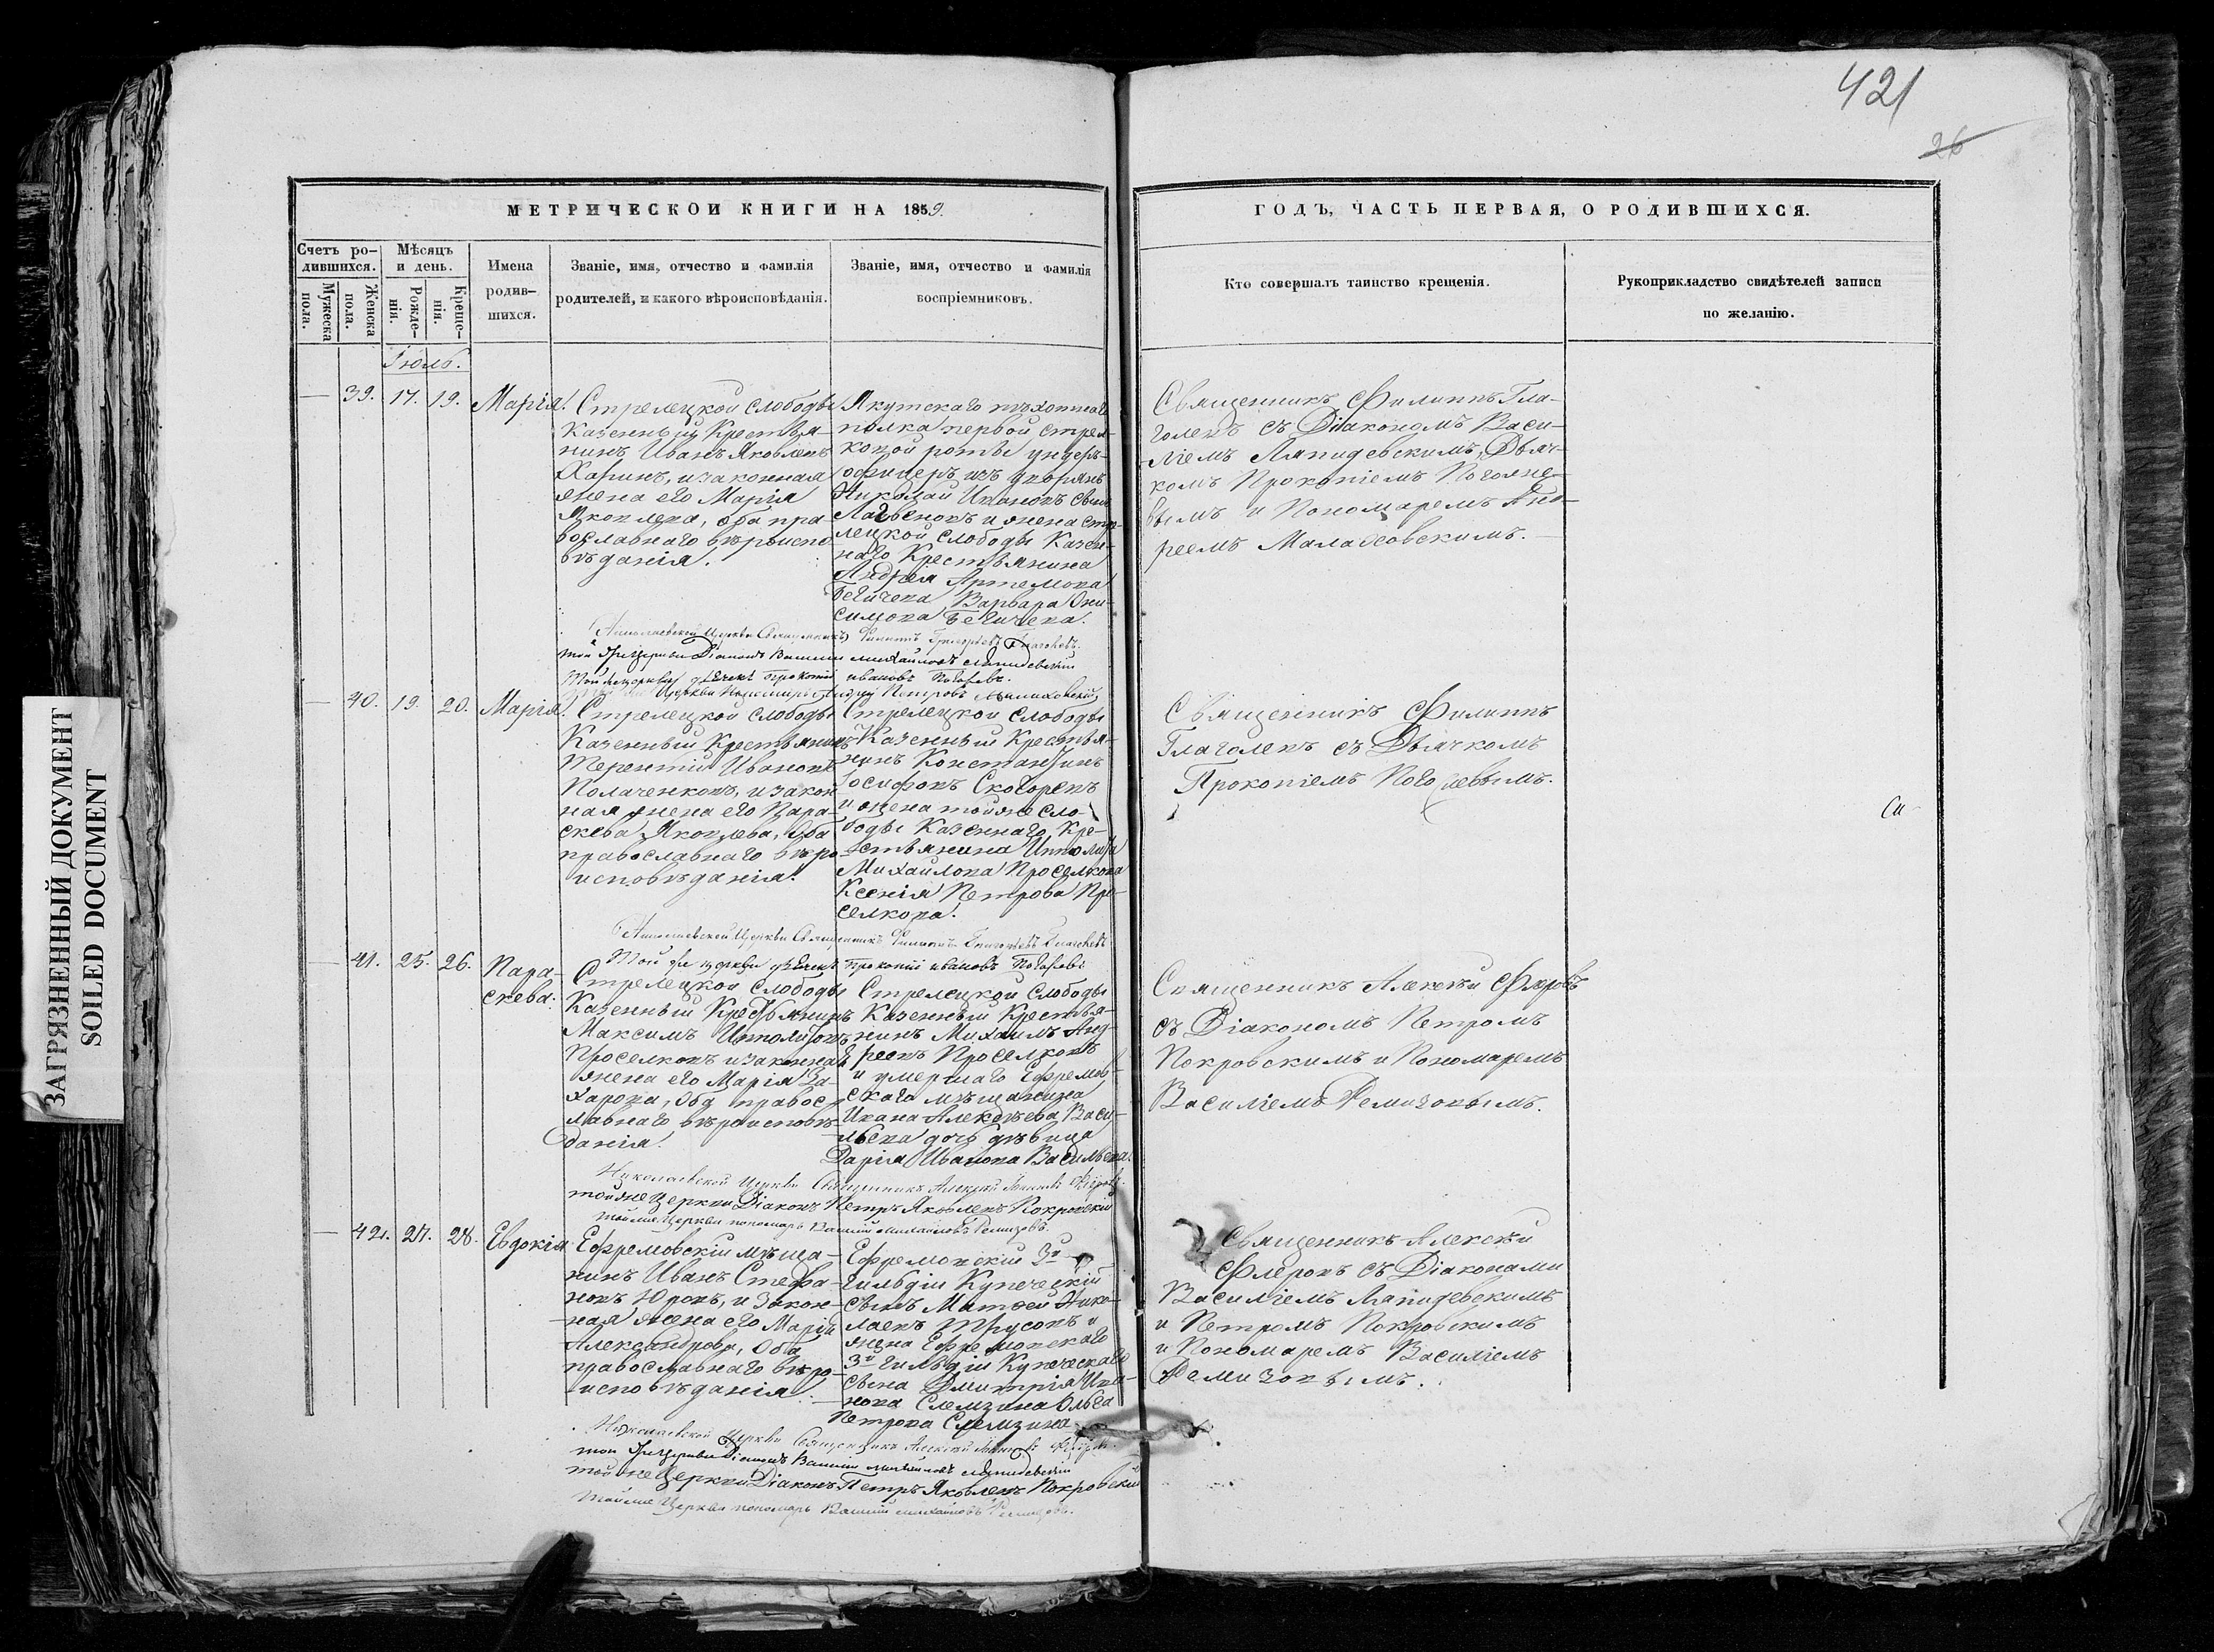 421
26
МЕТРИЧЕСКОЙ КНИГИ НА 1859.
ГОДЪ, ЧАСТЬ ПЕРВАЯ, О РОДИВШИХСЯ.
Счетъ ро-
дившихся.
Мужеска
пола.
Женска
пола.
Мѣсяцъ
и день.
Рожде-
нія.
Креще-
нія.
Имена
родив-
шихся.
Званіе, имя, отчество и фамилія
родителей, и какого вѣроисповѣданія.
Званіе, имя, отчество и фамилія
воспріемниковъ.
Кто совершалъ таинство крещенія.
Рукоприкладство свидѣтелей записи
по желанію.
Іюль.
39. 17. 19. Марія
Стрелецкой слободы
Казенный Крестья-
нинъ Иванъ Яковлевъ
Харинъ, и законная
жена его Марія
Яковлева, оба пра-
вославнаго вѣроиспо-
вѣданія.
Якутскаго пѣхотнаго
полка первой стрел-
ковой роты ундеръ-
офицеръ изъ дворянъ
Николай Ивановъ
и жена Стре-
лецкой слободы Казен-
наго Крестьянина
Андрея Артемова
Бегичева Варвара Они-
симова Бегичева.
Священникъ Филиппъ Гла-
голевъ съ Діакономъ Васи-
ліемъ Лапидевскимъ, Дьяч-
комъ Прокопіемъ
и Пономаремъ Анд-
реемъ
Николаевской Церкви Священникъ Филиппъ Григорьевъ Глаголевъ.
той же Церкви Діаконъ Василий Михайловъ Лапидевский
той же церкви дьячекъ Прокопий Ивановъ
Церкви Пономарь Андрей Петровъ
40. 19. 20. Марія
Стрелецкой слободы
Казенный Крестьянинъ
Терентій Ивановъ
Полаченковъ, и закон-
ная жена его Пара-
скева Яковлева, оба
православнаго вѣро-
исповѣданія.
Стрелецкой слободы
Казенный Крестья-
нинъ Константинъ
Іосифовъ Скоборевъ
и жена той же сло-
боды Казеннаго Кре-
стьянина Ипполита
Михайлова Проселкова
Ксенія Петрова Про-
селкова.
Священникъ Филиппъ
Глаголевъ съ Дьячкомъ
Прокопіемъ
Николаевской Церкви Священникъ Филиппъ Григорьевъ Глаголевъ
Той же церкви дьячекъ Прокопий Ивановъ
41. 25. 26. Пара-
скева.
Стрелецкой слободы
Казенный Крестьянинъ
Максимъ Ипполитовъ
Проселковъ и законная
жена его Марія За-
харова, оба правос-
лавнаго вѣроисповѣ-
данія.
Стрелецкой слободы
Казенный Крестья-
нинъ Михаилъ Анд-
реевъ Проселковъ
и умершаго Ефремов-
скаго мѣщанина
Ивана Алексѣева Васи-
льева дочь дѣвица
Дарія Иванова Васильева.
Священникъ Алексѣй Флеровъ
съ Діакономъ Петромъ
Покровскимъ и Пономаремъ
Василіемъ Ремизовымъ.
Николаевской Церкви Священникъ Алексѣй Флеровъ.
той же Церкви Діаконъ Петръ Яковлевъ Покровскій
той же Церкви пономарь Василий Михайловъ Ремизовъ.
42. 27. 28. Евдокія
Ефремовскій мѣща-
нинъ Иванъ Стефа-
новъ Юревъ, и закон-
ная жена его Марія
Александрова, оба
православнаго вѣро-
исповѣданія.
Ефремовскій 3й
гильдіи Купеческій
сынъ Матвей Нико-
лаевъ Трусовъ и
жена Ефремовскаго
3й гильдіи Купеческаго
сына Дмитрія Ива-
нова Слемзина Ольга
Петрова Слемзина
Священникъ Алексѣй
Флеровъ съ Діаконами
Василіемъ Лапидевскимъ
и Петромъ Покровскимъ
и Пономаремъ Василіемъ
Ремизовымъ.
Николаевской Церкви Священникъ Алексѣй Флеровъ.
той же Церкви Діаконъ Василий Михайловъ Лапидевский
той же Церкви Діаконъ Петръ Яковлевъ Покровскій
той же Церкви пономарь Василий Михайловъ Ремизовъ.
ЗАГРЯЗНЕННЫЙ ДОКУМЕНТ
SOILED DOCUMENT